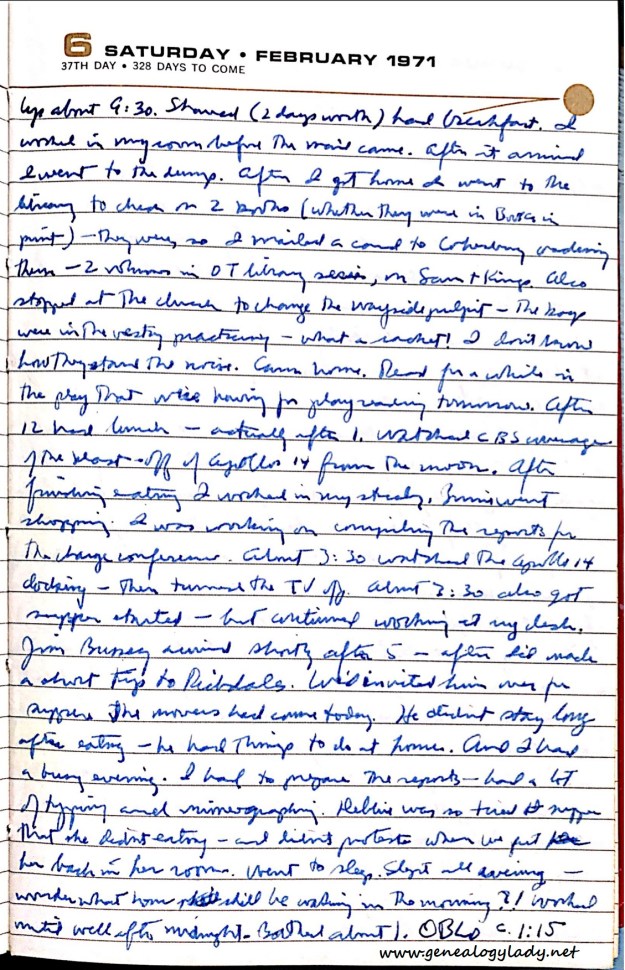 6 SATURDAY • FEBRUARY 1971
37TH DAY • 328 DAYS TO COME
Up about 9:30. Shaved (2 days worth) had breakfast. I
worked in my room before the mail came. After it arrived
I went to the dump. After I got home I went to the
library to check on 2 books (whether they were in Books in
print) – they were, so I mailed a card to Cokesbury ordering
them – 2 volumes in OT library series, on Sam + Kings. Also
stopped at the church to change the wayside pulpit – The boys
were in the vestry practicing – what a racket! I don't know
how they stand the noise. Came home. Read for a while in
the play that we're having for play reading tomorrow. After
12 had lunch – actually after 1. Watched CBS coverage
of the blast-off of Apollo 14 from the moon. After
finishing eating I worked in my study. went
shopping. I was working on compiling the reports for
the charge conference. About 3:30 watched the Apollo 14
docking – then turned the TV off. About 3:30 also got
supper started – but continued working at my desk.
Jim Bussey arrived shortly after 5 – after I'd made
a short trip to Richdales. We'd invited him over for
supper. The movers had come today. He didn't stay long
after eating – he had things to do at home. And I had
a busy evening. I had to prepare the reports – had a lot
of typing and mimeographing. Debbie was so tired at supper
that she didn't eating – and didn't protest when we put
her back in her room. Went to sleep. Slept all evening –
wonder what hour she'll be waking in the morning?! Worked
until well after midnight. Bathed about 1. OBLO c. 1:15
www.genealogylady.net